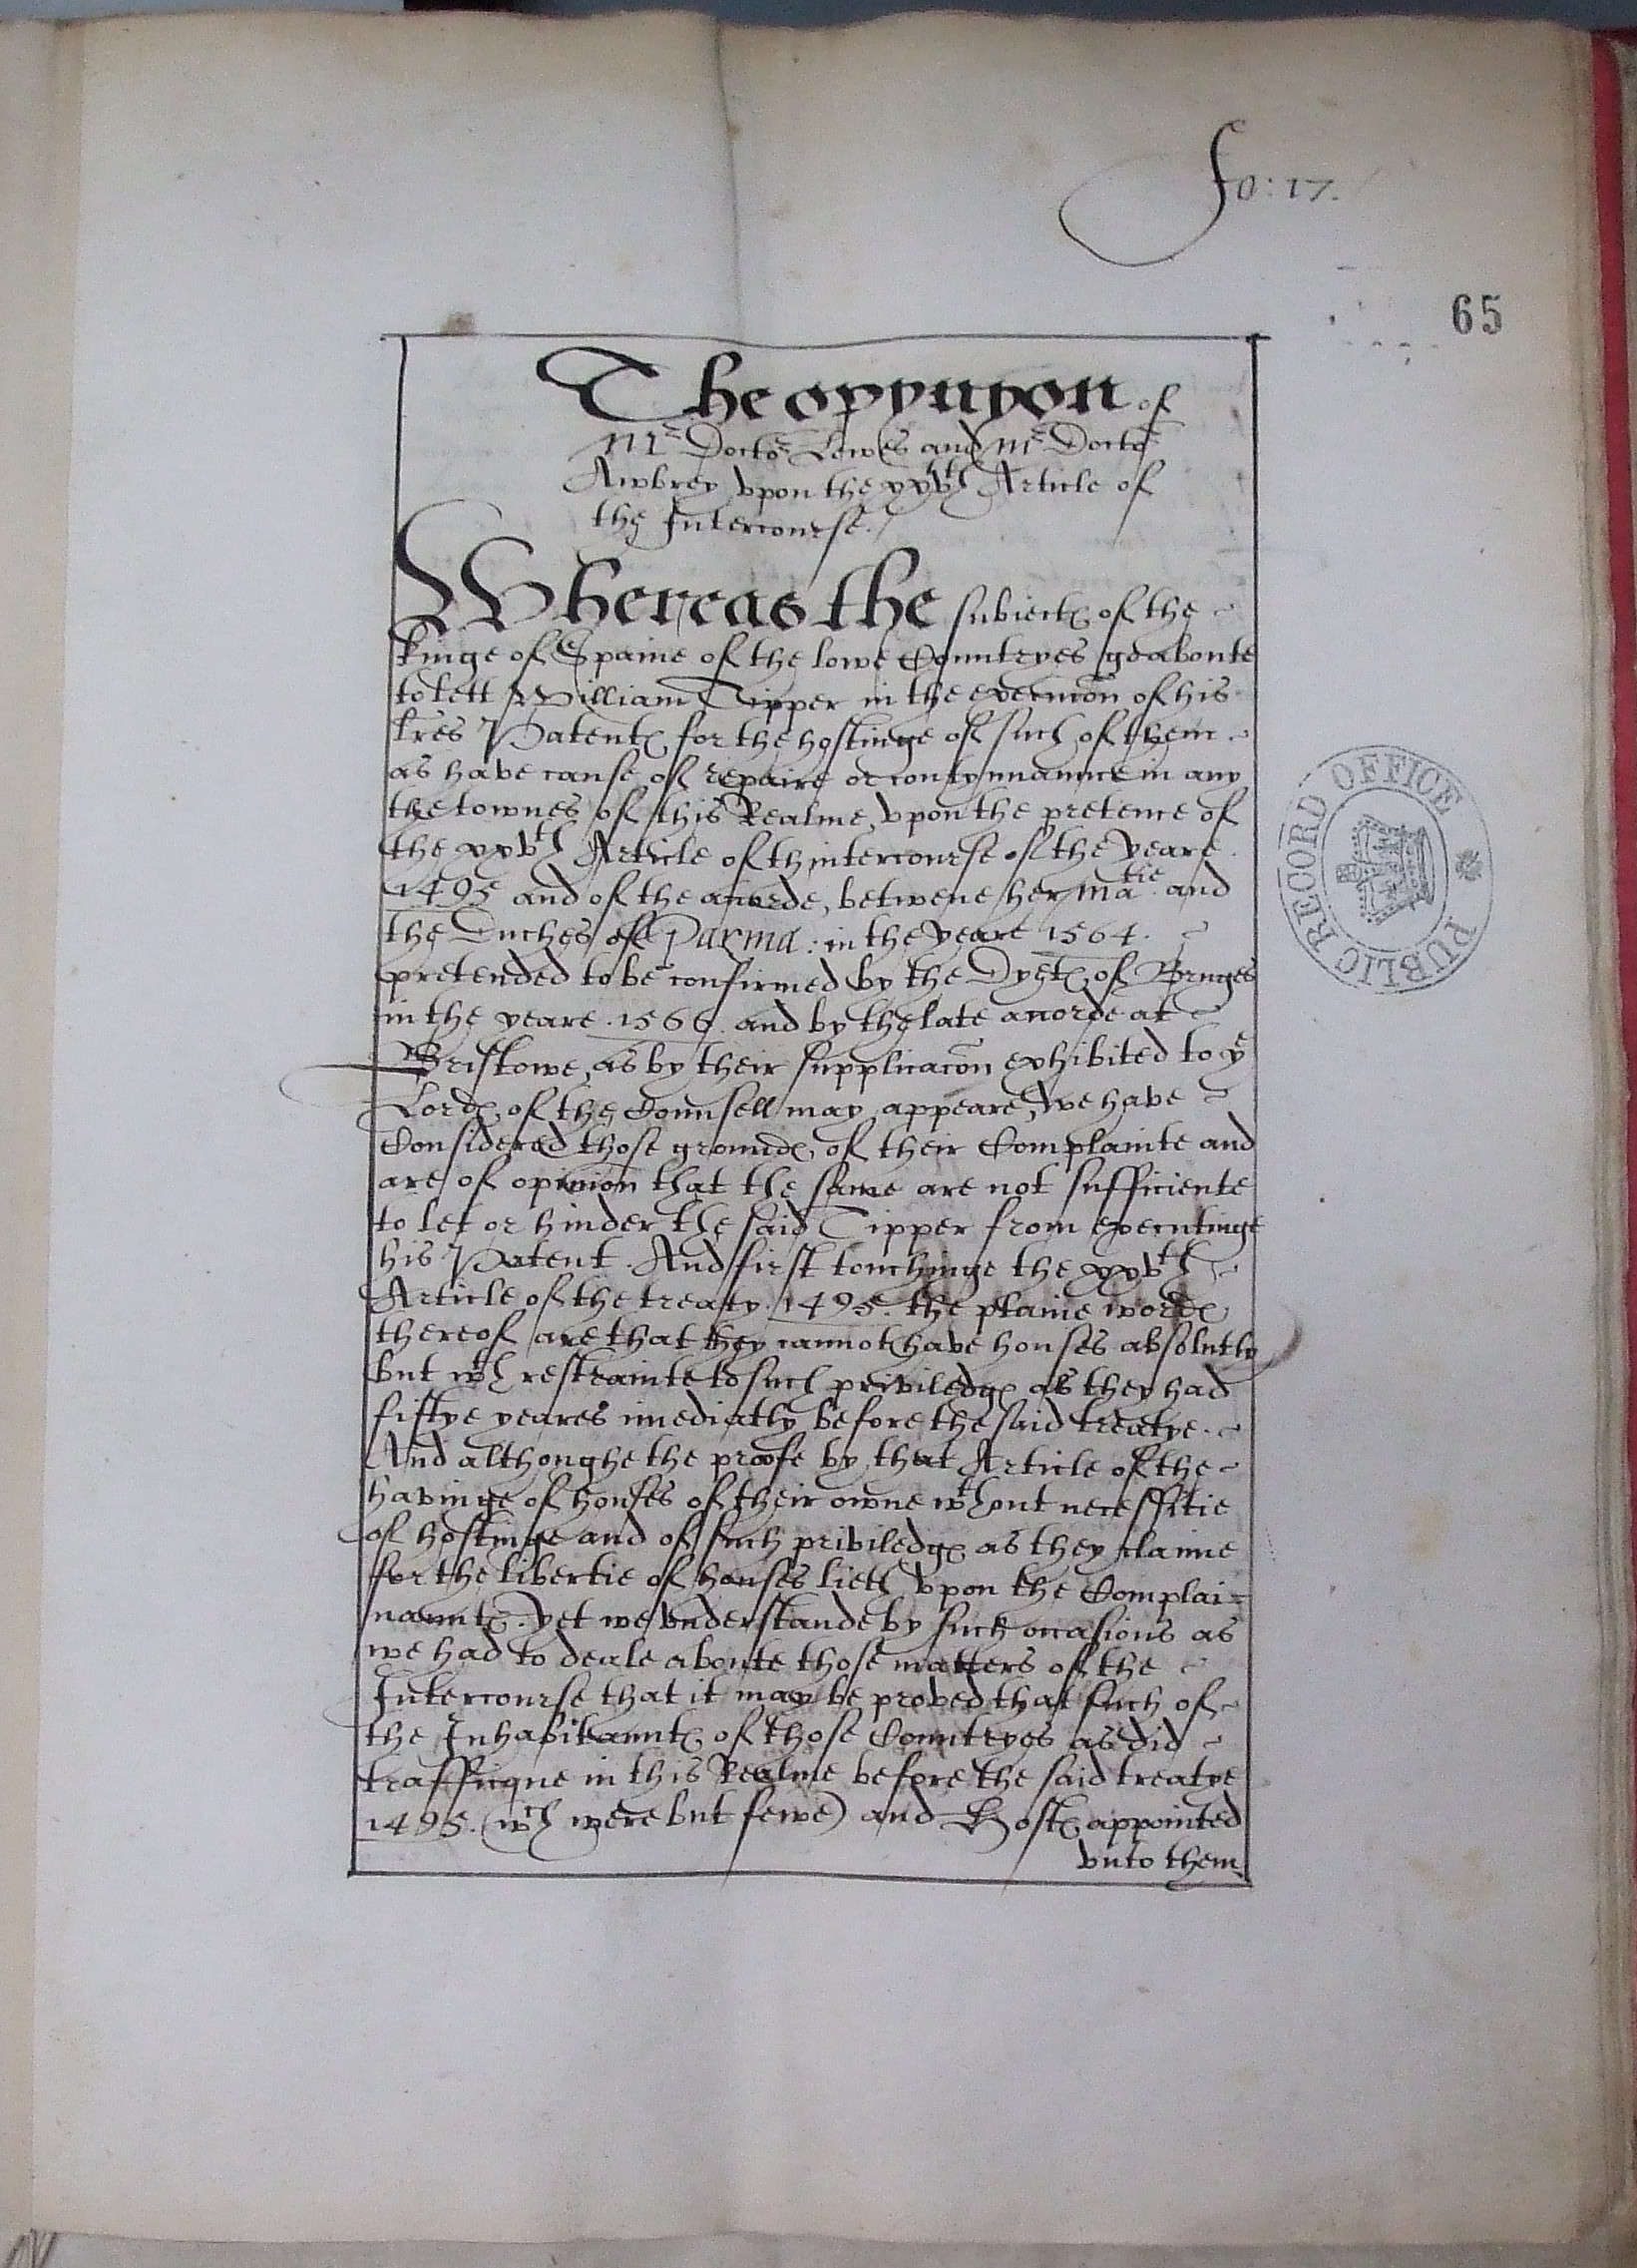 fo: 17.
65
The opynyon of
Mr Docto^r Lewes and Mr Docto^r
Awbrey vpon the xxv^th Article of
the Intercourse./
Whereas the subiect℮ of the
kinge of Spaine of the lowe Countryes go aboute
to lett William Tipper in the execucõn of his
lr̃es Patent℮ for the hostinge of such of them
as have cause of repaire or contynuaunce in any
the townes of this Realme, vpon the pretence of
the xxv^th Article of thintercourse of the yeare
1495 and of the accorde, betwene her Ma^tie and
the Duches of Parma: in the yeare 1564.
pretended to be confirmed by the Dyet℮ of Bruges
in the yeare .1566. and by the late accorde at
Bristowe, as by their supplicacõn exhibited to y^e
Lord℮ of the Counsell may appeare, we have
Considered those ground℮ of their Complainte and
are of opinion that the same are not sufficiente
to let or hinder the said Tipper from executinge
his Patent. And first touchinge the xxv^th
Article of the treaty .1495. the plaine word℮
thereof are that they cannot have houses absolutly
but w^th restrainte to such priviledg℮ as they had
fiftye yeares im̃ediatly before the said treatye.
And althoughe the proofe by that Article of the
havinge of houses of their owne w^thout necessitie
of hostinge and of such priviledg℮ as they claime
for the libertie of houses lieth vpon the Complai=
naunt℮. yet we vnderstande by such occasions as
we had to deale aboute those matters of the
Intercourse that it may be proved that such of
the Inhabitaunt℮ of those Countryes as did
trafficque in this Realme before the said treatye
1495. (w^ch were but fewe) and Host℮ appointed
vnto them
PUBLIC RECORD OFFICE